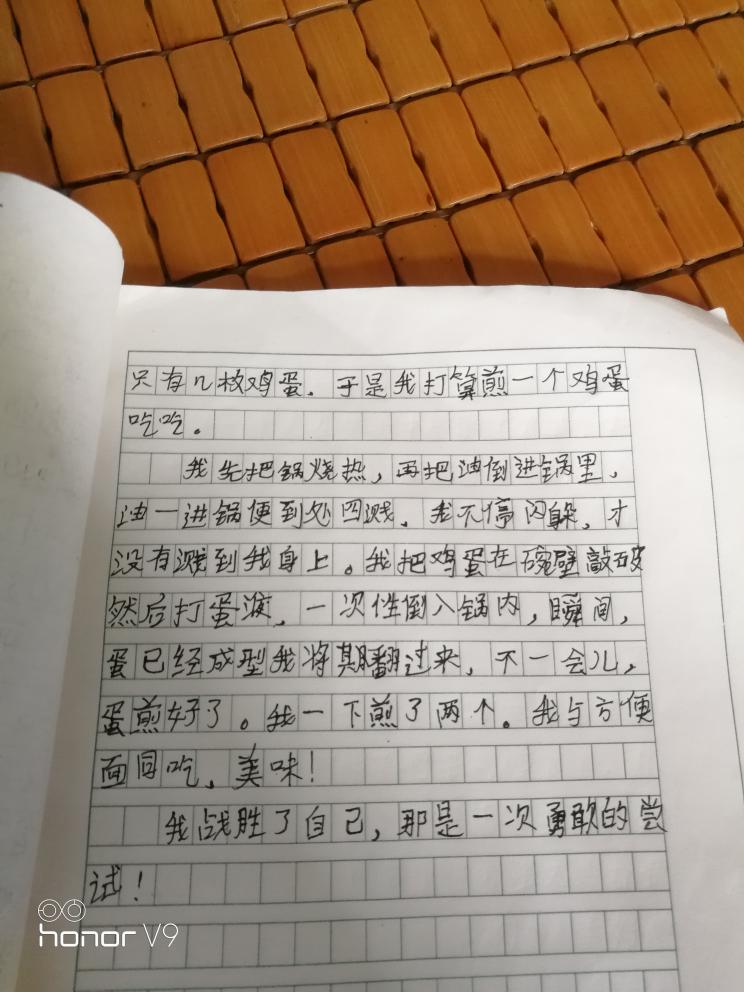 只有几枚鸡蛋.于是我打算煎一个鸡蛋
吃吃。
我先把锅烧热,再把油倒进锅里,
油一进锅便到处四溅.我不停闪躲,才
没有溅到我身上。我把鸡蛋在碗壁敲破
然后打蛋液,一次性倒入锅内,瞬间,
蛋已经成型我将其翻过来,不一会儿,
蛋煎好了。我一下煎了两个。我与方便
面同吃,美味!
我战胜了自己,那是一次勇敢的尝
试!
honor V9